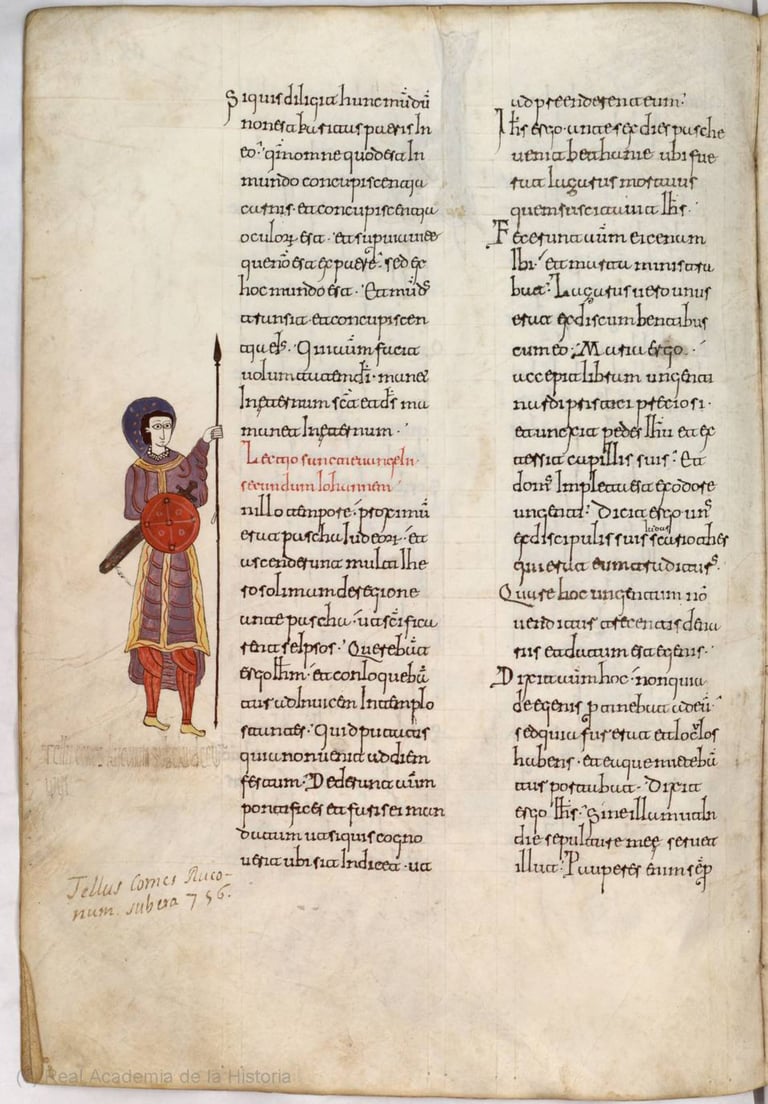 Siquis diligit hunc mūdū
non est karitas patris In
eo· qm̄ omne quod est In
mundo concupiscentia
carnis· et concupiscentia
oculoꝝ est·
que nō est ex patre· sed ex
hoc mundo est· Et mūds
transit· et concupiscen
tia eIs· Qui aūm facit
volumtatem dī· manet
In eternum sc̄t et ds̄ ma
manet In eternum·
Lectio sancti euangeln
secundum Iohannem
n illo tempore· proximū
erat pascha Iudeoꝝ· et
ascenderunt multi Ihe
rosolimam de regione
ante pascha· ut sc̄ifica
rent se Ipsos· Querebāt
ergo Ihm̄· et conloquebā
tur ad Inuicem In templo
stantes· Quid putatis
quia non uenit ad diem
festum· Dederunt aūm
pontifices et farisei man
datum ut siquis cogno
uerit ubi sit Indicet· ut
adpreenderent eum·
Ihs ergo· ante sex dies pasche
uenit bethanie ubi fue
rat lazarus mortuus
quem suscitauit Ihs·
Fecerunt aūm ei cenam
Ibi· et marta ministra
bat· Lazarus uero unus
erat ex discumbentibus
cum eo· Maria ergo·
accepit libram ungenti
nardi pristici pretiosi·
et uncxit pedes Ihū et ex
tersit capillis suis· Et
dom̄ Impleta est ex odore
ungenti· Dicit ergo un
ex discipulis suis iudas scariothes
qui erat eum traditurs·
Quare hoc ungentum nō
uenditur trecentis dena
riis et datum est egenis·
Dixit aūm hoc· non quia
de egenis ptinebat ad eū·
sed quia fur erat et loclos
habens· et ea que mitebā
tur portabat· Dixit
ergo Ihs· Sine illam ut In
die sepulture mee seruet
illut· Pauperes enim sēp
Tellus Comes Ruco-
num. sub era 796.
© Real Academia de la Historia